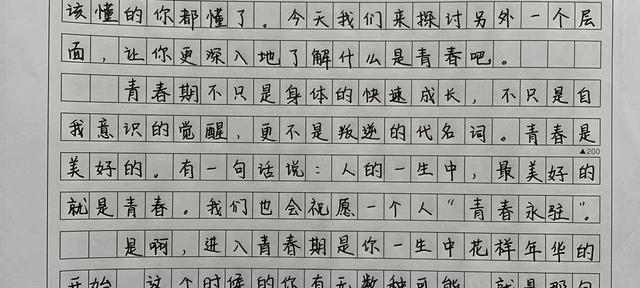 该懂的你都懂了。今天我们来探讨另外一个层
面，让你更深入地了解什么是青春吧。
青春期不只是身体的快速成长，不只是自
我意识的觉醒，更不是叛逆的代名词。青春是
▲200
美好的。有一句话说：人的一生中，最美好的
就是青春。我们也会祝愿一个人“青春永驻”。
是啊，进入青春期是你一生中花样年华的
开始。这个时候的你有无数种可能，就是那句